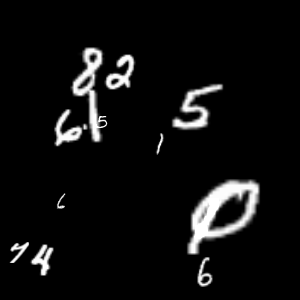 8 2
6 1 5 1 5
6 0
7 4 6